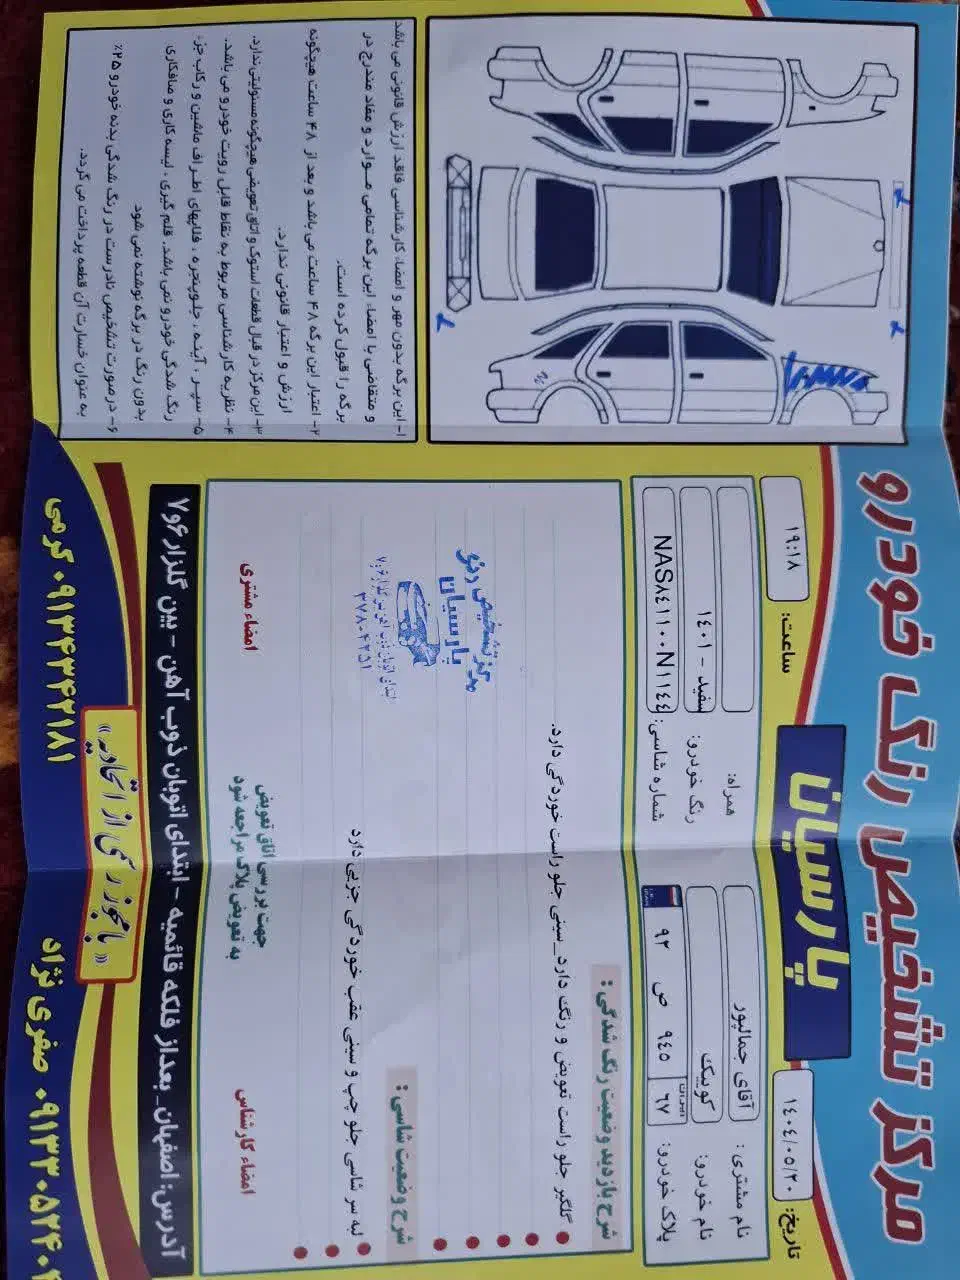 مرکز تشخیص رنگ خودرو
پارسیان
تاریخ: ۱۴۰۴/۰۵/۲۰
ساعت: ۱۹:۱۸
نام مشتری: آقای جمالپور
همراه:
نام خودرو: کوییک
رنگ خودرو: سفید - ۱۴۰۱
پلاک خودرو: ۹۲ ص ۹۴۵ ایران ۶۷
شماره شاسی: NAS۸۴۱۱۰۰N۱۱۴۴
شرح بازدید وضعیت رنگ شدگی:
گلگیر جلو راست تعویض و رنگ دارد_سینی جلو راست خوردگی دارد.
شرح وضعیت شاسی:
لبه سر شاسی جلو چپ و سینی عقب خوردگی جزیی دارد
مرکز تشخیص رنگ
پارسیان
۳۷۸۰۴۲۵۱
امضاء کارشناس
جهت بررسی اتاق تعویض
به تعویض پلاک مراجعه شود
امضاء مشتری
آدرس: اصفهان_ بعد از فلکه قائمیه - ابتدای اتوبان ذوب آهن - بین گلزار ۶و۷
« با مجوز رسمی از اتحادیه »
صفری نژاد
۰۹۱۳۴۳۴۲۱۸۱ کرمی
۱- این برگه بدون مهر و امضاء کارشناسی فاقد ارزش قانونی می باشد
و متقاضی با امضاء این برگه تمامی موارد و مفاد مندرج در
برگه را قبول کرده است.
۲- اعتبار این برگه ۴۸ ساعت می باشد و بعد از ۴۸ ساعت هیچگونه
ارزش و اعتبار قانونی ندارد.
۳- این مرکز در قبال قطعات استوک و اتاق تعویضی هیچگونه مسئولیتی ندارد.
۴- نظریه کارشناسی مربوط به نقاط قابل رویت خودرو می باشد.
۵- سپر ، آینه ، جلوپنجره ، فلاپهای اطراف ماشین و رکاب جزء
رنگ شدگی خودرو نمی باشد. قلم گیری ، لیسه کاری و صافکاری
بدون رنگ در برگه نوشته نمی شود
۶- در صورت تشخیص نادرست در رنگ شدگی بدنه خودرو ۲۵٪
به عنوان خسارت آن قطعه پرداخت می گردد.